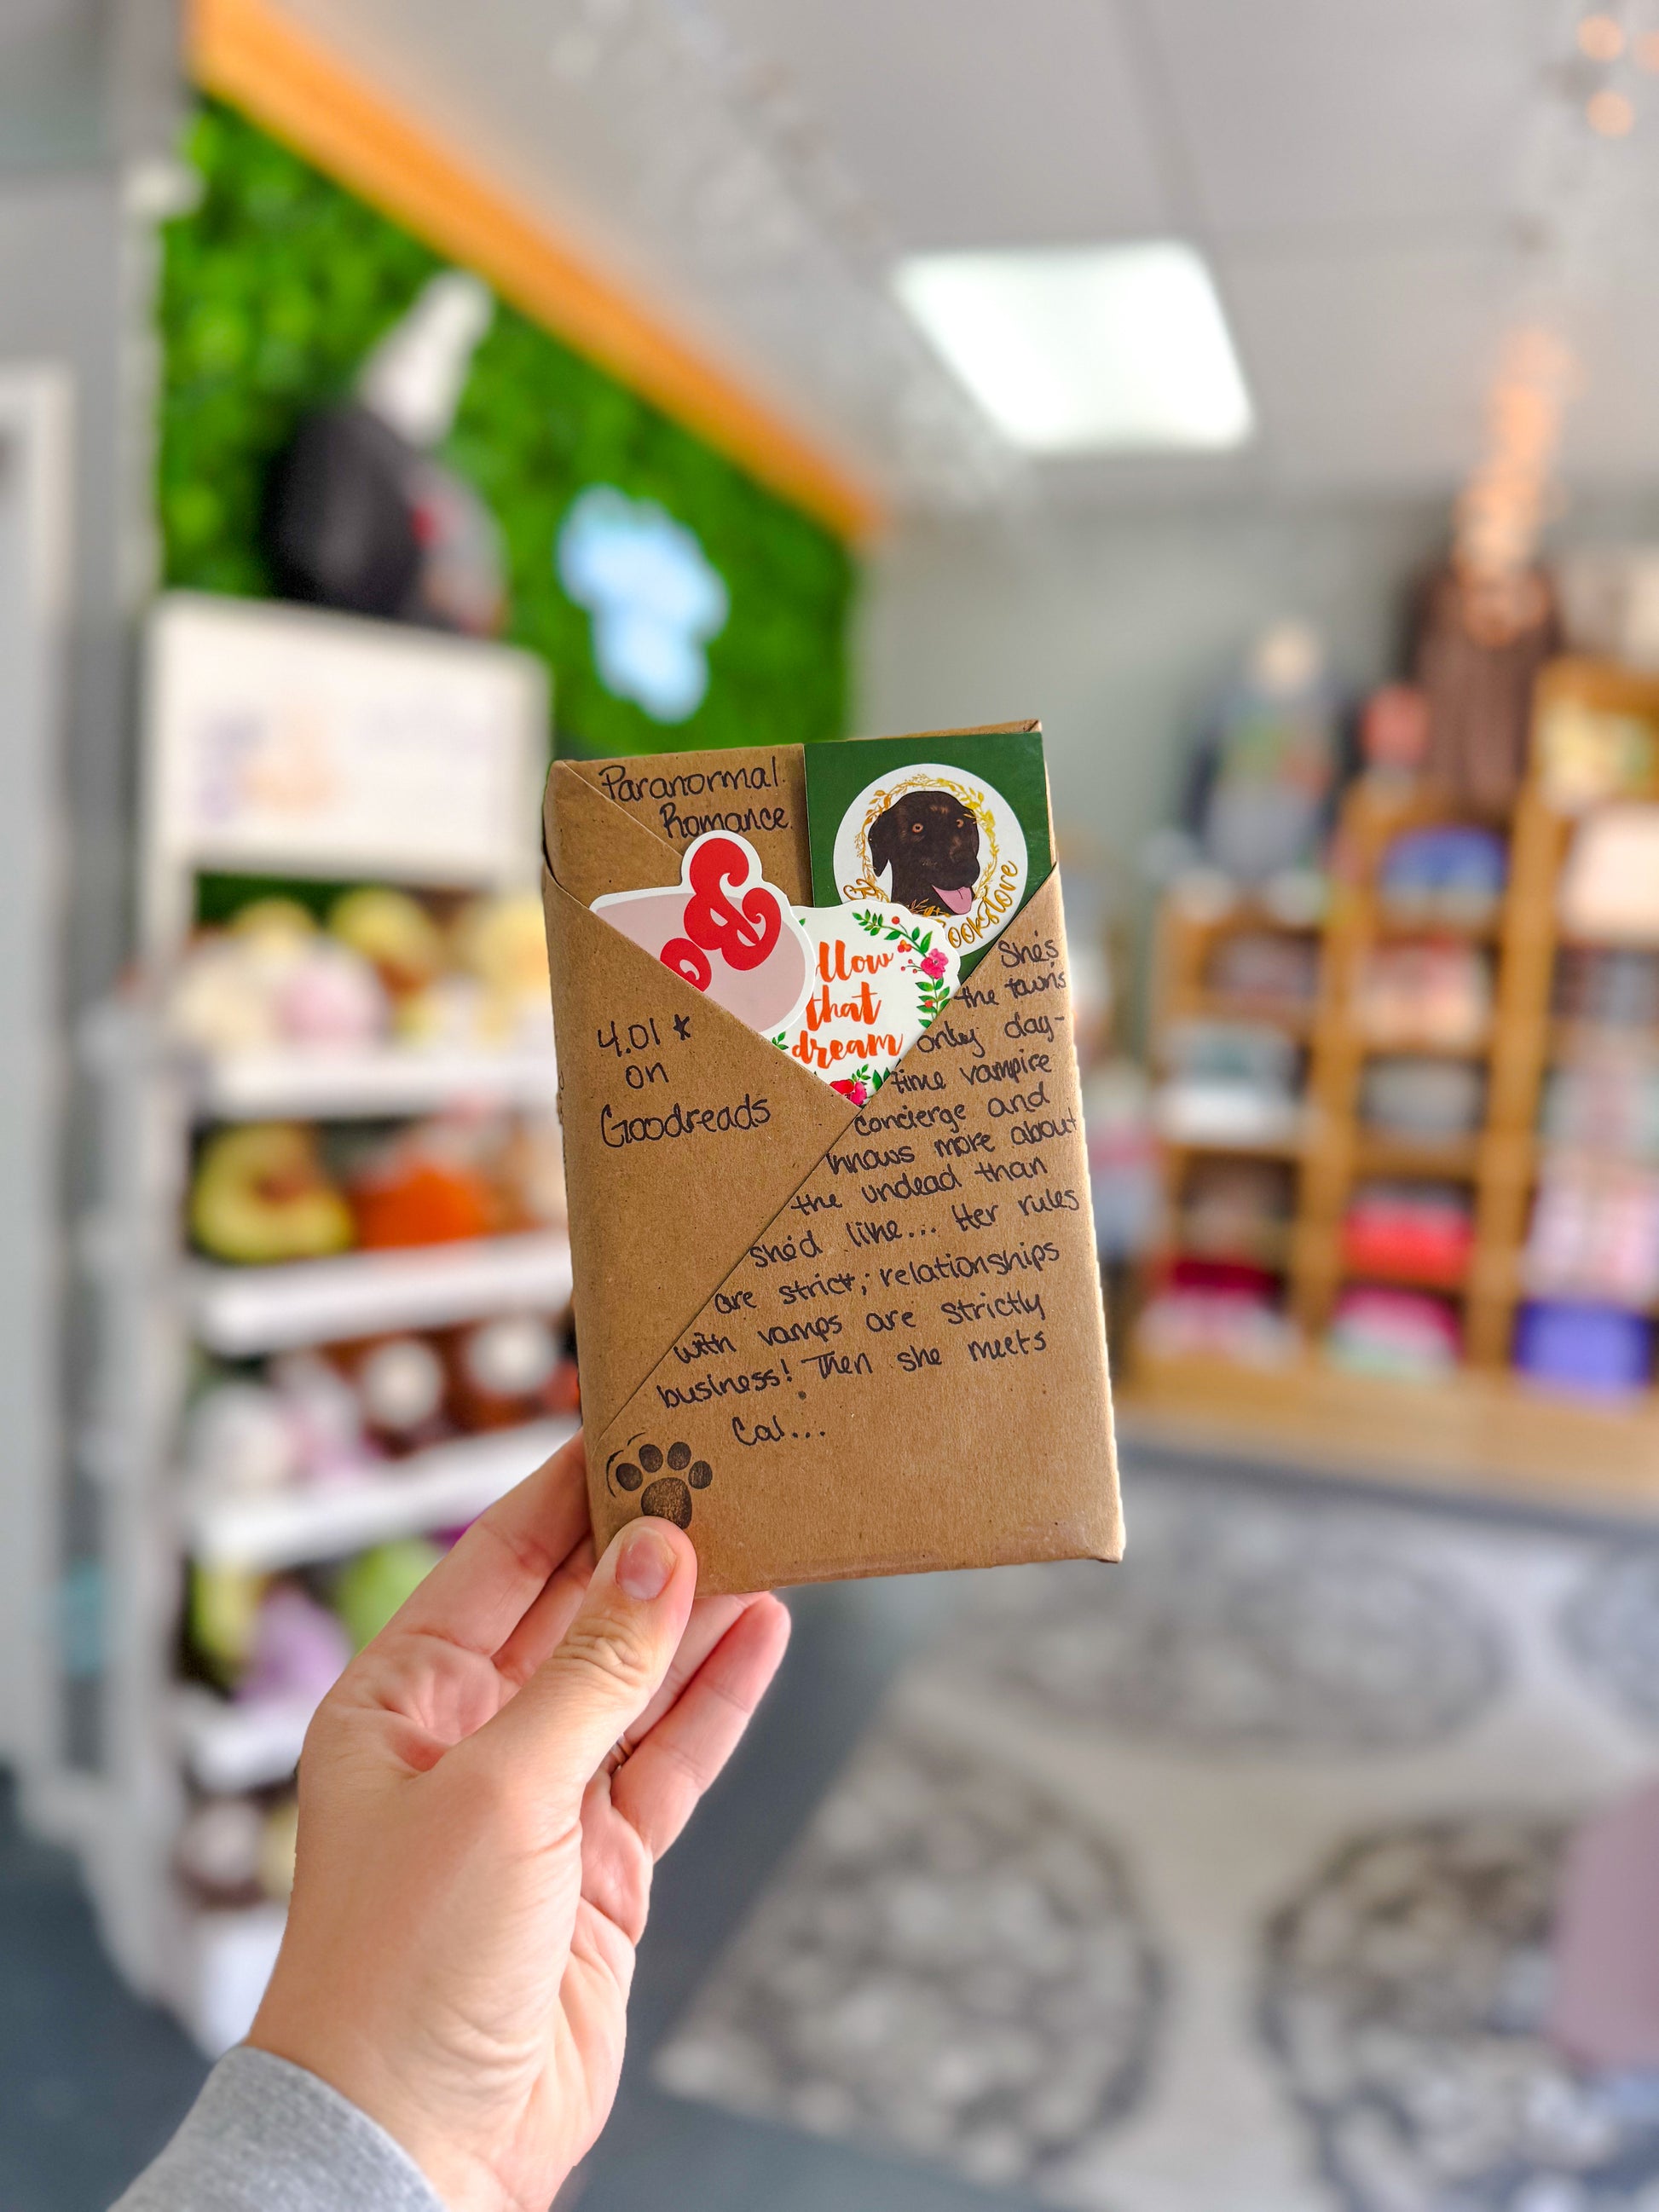 Paranormal
Romance
Bo
ookstore
llow
that
dream
4.01 *
on
Goodreads
She's
the town's
only day-
time vampire
concierge and
knows more about
the undead than
she'd like... Her rules
are strict; relationships
with vamps are strictly
business! Then she meets
Cal...